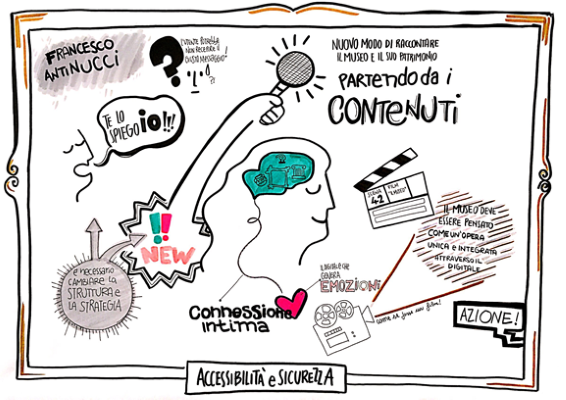 FRANCESCO
ANTINUCCI
?
L'UTENTE POTREBBE
NON RECEPIRE IL
GIUSTO MESSAGGIO!
NUOVO MODO DI RACCONTARE
IL MUSEO E IL SUO PATRIMONIO
PARTENDO DA I
CONTENUTI
TE LO
SPIEGO IO!!!
!!
NEW
È NECESSARIO
CAMBIARE LA
STRUTTURA E
LA STRATEGIA
SCENA
42
FILM
IL MUSEO DEVE
ESSERE PENSATO
COME UN'OPERA
UNICA E INTEGRATA
ATTRAVERSO IL
DIGITALE
IL DIGITALE CHE
GENERA
EMOZIONI
CONNESSIONE
INTIMA
COME SE FOSSE UN FILM!
AZIONE!
ACCESSIBILITÀ E SICUREZZA